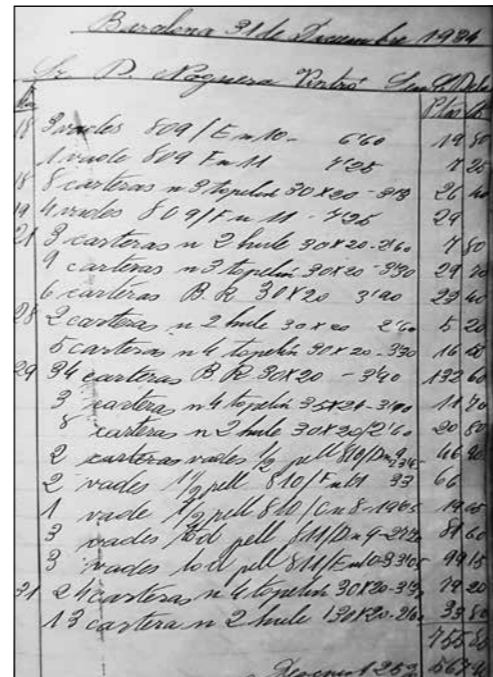 Barcelona 31 de Diciembre 1934
Sr. D. Noguera Vintró
Ptas
18 3 vades 809/E nº 10 - 6'60 19 80
1 vade 809 F nº 11 7'25 7 25
18 8 carteras n 3 topelin 30x20 - 26 40
19 4 vades 809/F nº 11 - 7'25 29
21 3 carteras n 2 hule 30x20 - 2'60 7 80
9 carteras n 3 topelin 30x20 - 3'30 29 70
6 carteras B.R 30x20 3'90 23 40
28 2 carteras n 2 hule 30x20 2'60 5 20
5 carteras n 4 topelin 30x20 - 3'30 16 50
29 34 carteras B.R 30x20 - 3'90 132 60
3 carteras n 4 topelin 35x24 - 3'90 11 70
8 carteras n 2 hule 30x20/2'60 20 80
2 carteras vades 1/2 pell 810/D nº 9 46 90
2 vades 1/2 pell 810/F nº 11 33 66
1 vade 1/2 pell 810/C nº 8 - 19'65 19 65
3 vades tod pell 811/D nº 9 - 27'20 81 60
3 vades tod pell 811/E nº 10 - 33'05 99 15
31 24 carteras n 4 topelin 30x20 - 3'30 79 20
13 carteras n 2 hule 30x20 - 2'60 33 80
755
567